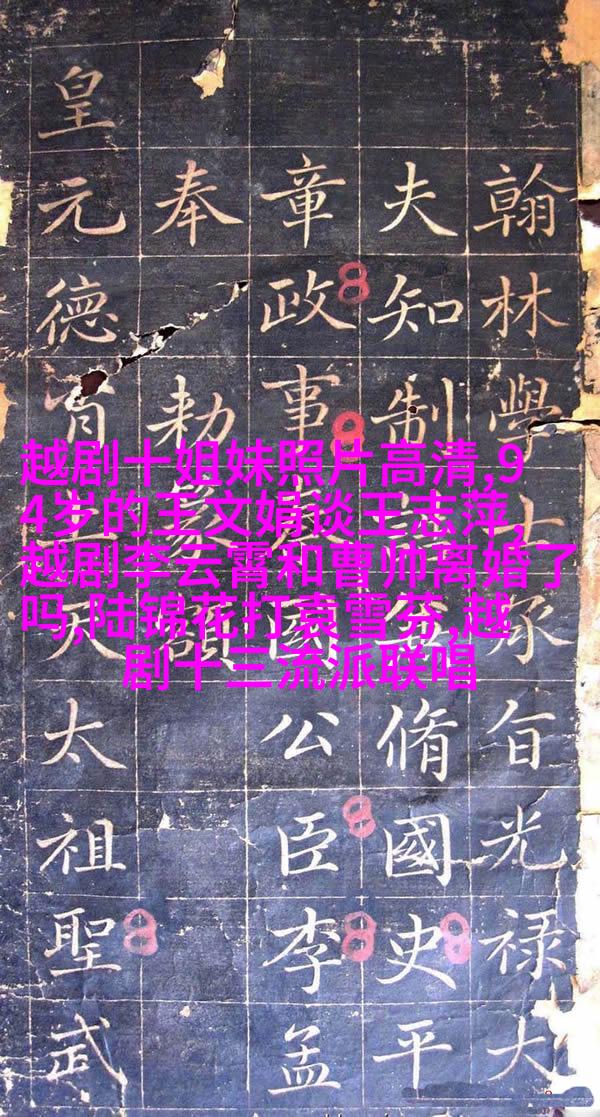 越剧十姐妹照片高清,9
4岁的王文娟谈王志萍,
越剧李云霄和曹帅离婚了
吗,陆锦花打袁雪芬,越
剧十三流派联唱
翰林學士承旨光禄大
夫知制脩國史平
章政事國公臣李孟
奉勅
皇元德天太祖聖武